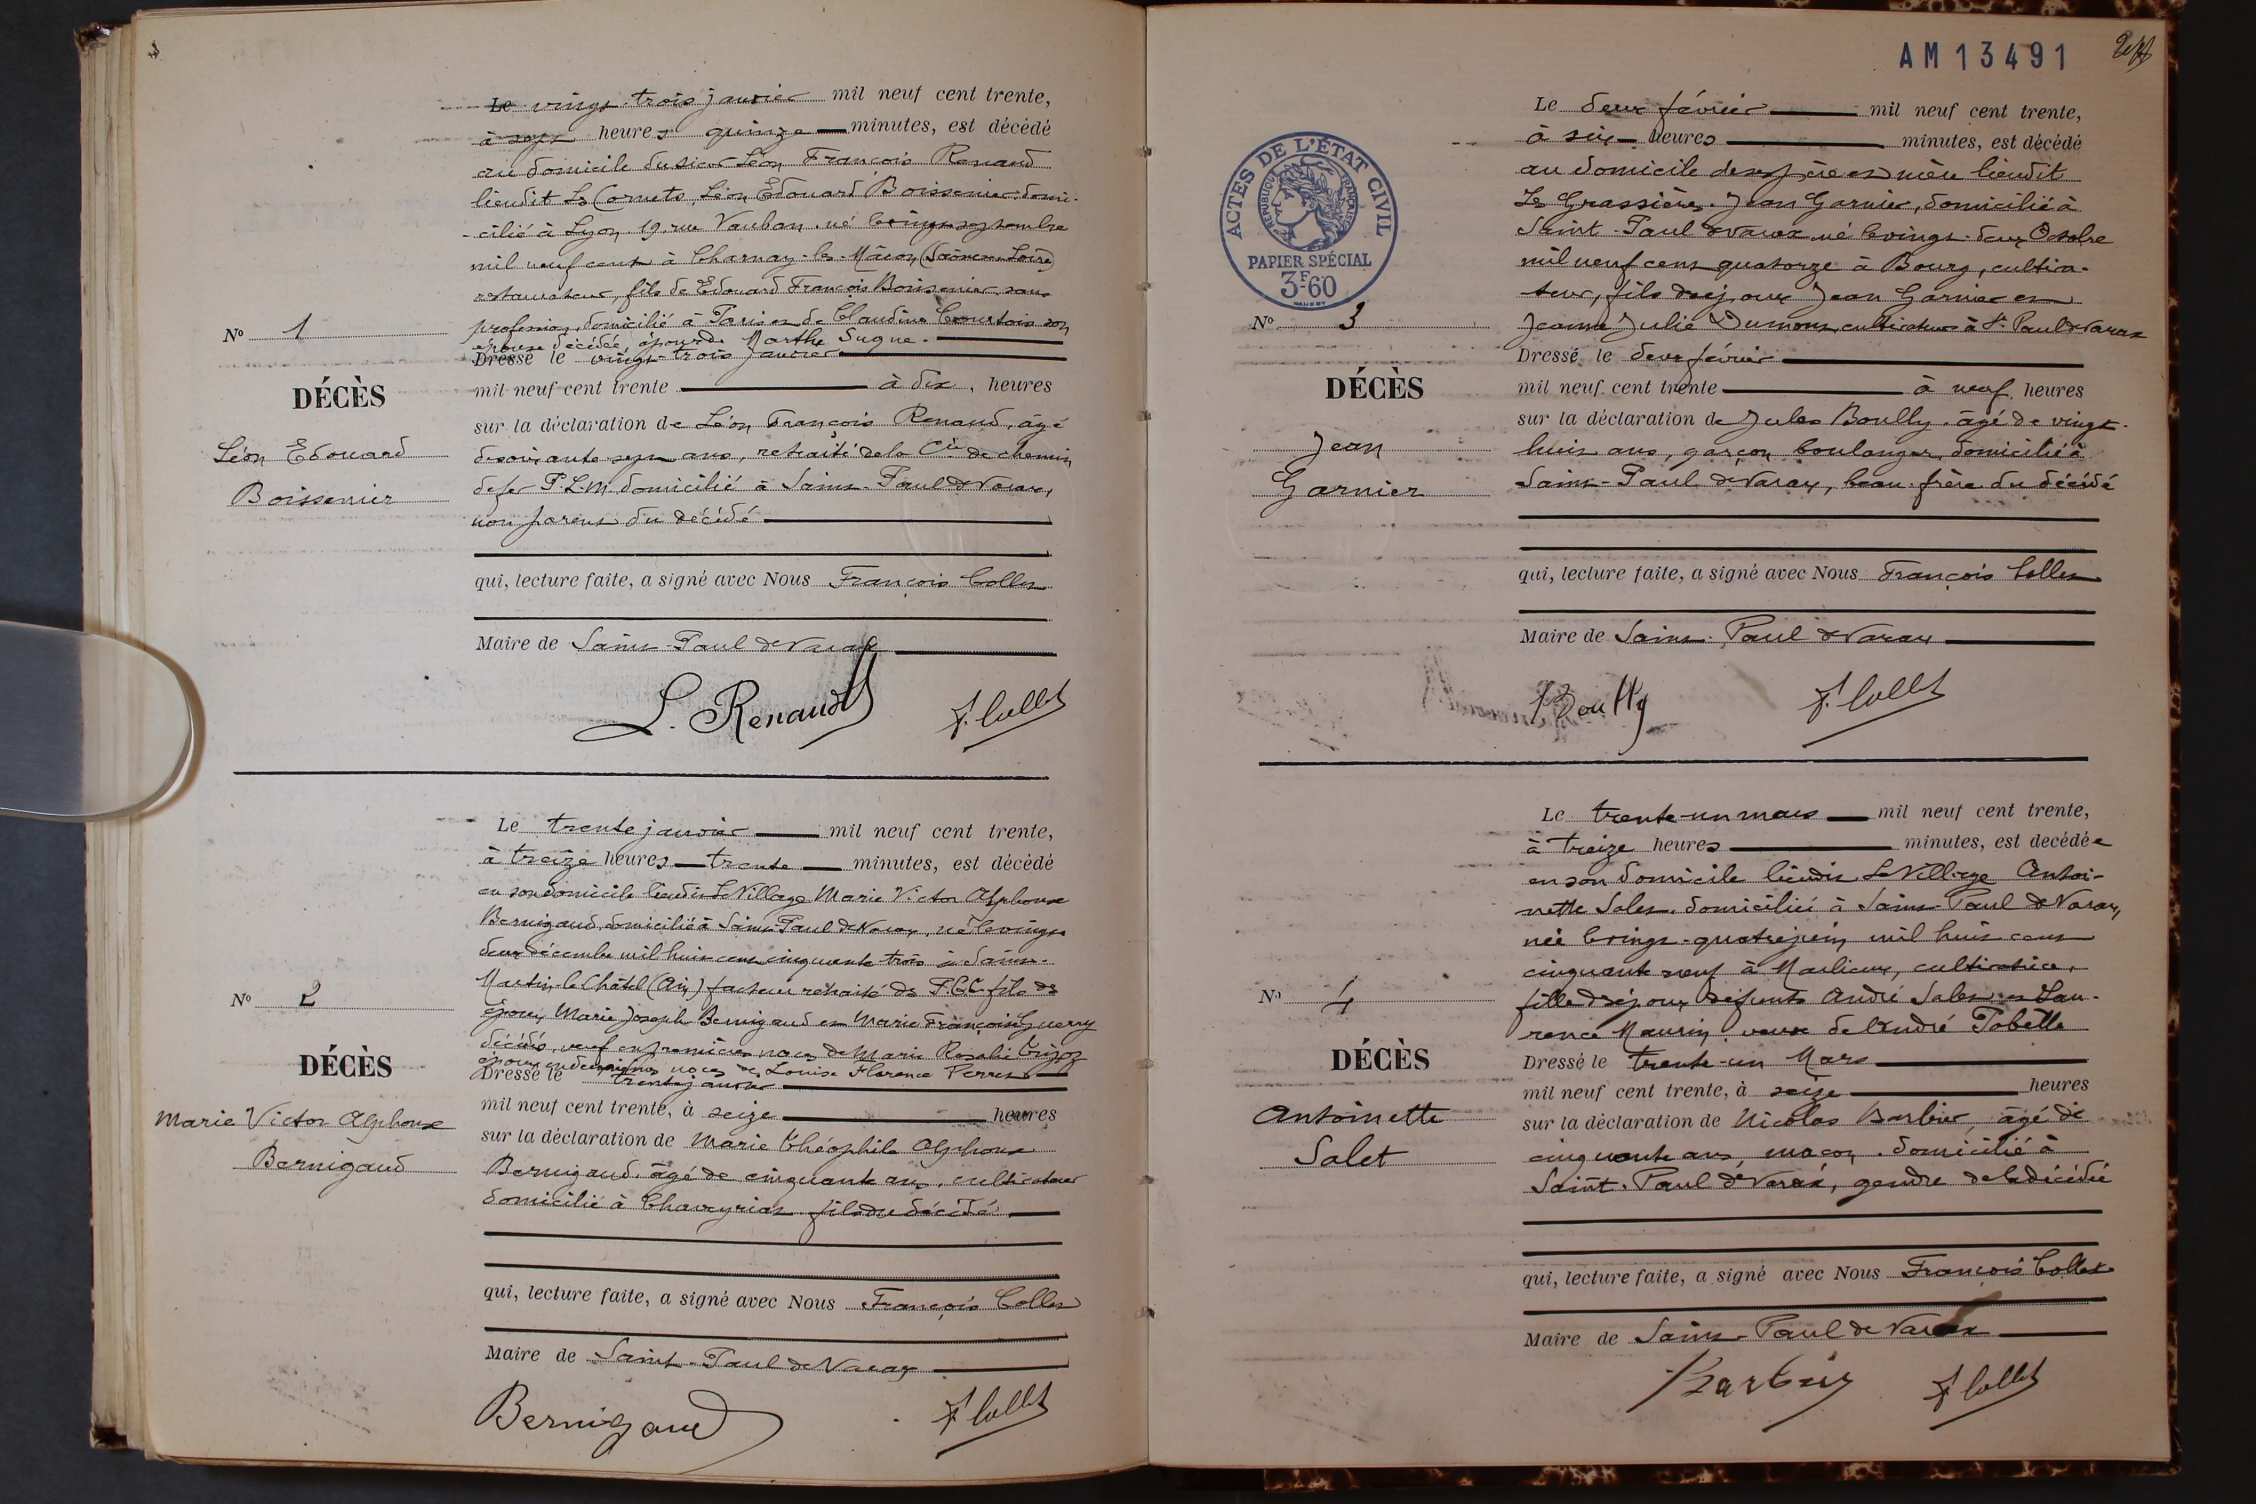 Le vingt-trois janvier mil neuf cent trente,
à sept heures quinze minutes, est décédé
au domicile du sieur Léon François Renaud
lieudit Les Cornets, Léon Edouard Boissenier, domi-
-cilié à Lyon 19 rue Vauban, né le vingt septembre
mil neuf cent à Charnay-les-Mâcon (Saône et Loire)
restaurateur, fils de Edouard François Boissenier, sans
profession, domicilié à Paris et de Claudine Courtois son
épouse décédée, époux de Marthe Sugne.
Dressé le vingt-trois janvier
mil neuf cent trente à dix heures
sur la déclaration de Léon François Renaud, âgé
de soixante sept ans, retraité de la Cie de chemin
de fer P.L.M. domicilié à Saint-Paul de Varax,
non parent du décédé
qui, lecture faite, a signé avec Nous François Collet
Maire de Saint-Paul de Varax
L. Renaud F. Collet
No 1
DÉCÈS
Léon Edouard
Boissenier
Le trente janvier mil neuf cent trente,
à treize heures trente minutes, est décédé
en son domicile lieudit Le Village Marie Victor Alphonse
Bernigaud, domicilié à Saint-Paul de Varax, né le vingt
deux décembre mil huit cent cinquante trois à Saint-
Martin-le-Châtel (Ain) facteur retraité des P.T.T. fils de
époux Marie Joseph Bernigaud et Marie Françoise Guerry
décédés, veuf en premières noces de Marie Rosalie
époux en deuxièmes noces de Louise Florence Perret
Dressé le trente janvier
mil neuf cent trente, à seize heures
sur la déclaration de Marie Théophile Alphonse
Bernigaud, âgé de cinquante ans, cultivateur
domicilié à Chaveyriat fils du décédé
qui, lecture faite, a signé avec Nous François Collet
Maire de Saint-Paul de Varax
Bernigaud F. Collet
No 2
DÉCÈS
Marie Victor Alphonse
Bernigaud
AM13491
ACTES DE L'ÉTAT CIVIL
RÉPUBLIQUE FRANÇAISE
PAPIER SPÉCIAL
3F60
Le deux février mil neuf cent trente,
à six heures minutes, est décédé
au domicile de ses père et mère lieudit
Les Grassières, Jean Garnier, domicilié à
Saint-Paul de Varax né le vingt-deux Octobre
mil neuf cent quatorze à Bourg, cultiva-
teur, fils des époux Jean Garnier et
Jeanne Julie Dumont, cultivateurs à St Paul de Varax
Dressé le deux février
mil neuf cent trente à neuf heures
sur la déclaration de Jules Boully, âgé de vingt-
huit ans, garçon boulanger, domicilié à
Saint-Paul de Varax, beau-frère du décédé
qui, lecture faite, a signé avec Nous François Collet
Maire de Saint-Paul de Varax
Boully F. Collet
No 3
DÉCÈS
Jean
Garnier
Le trente-un mars mil neuf cent trente,
à treize heures minutes, est décédée
en son domicile lieudit Le Village Antoi-
nette Salet, domiciliée à Saint-Paul de Varax,
née le vingt-quatre juin mil huit cent
cinquante neuf à Marlieux, cultivatrice,
fille des époux défunts André Salet et Lau-
rence Maurin, veuve de André Tobelle
Dressé le trente-un Mars
mil neuf cent trente, à seize heures
sur la déclaration de Nicolas Barbier, âgé de
cinquante ans, maçon, domicilié à
Saint-Paul de Varax, gendre de la décédée
qui, lecture faite, a signé avec Nous François Collet
Maire de Saint-Paul de Varax
Barbier F. Collet
No 4
DÉCÈS
Antoinette
Salet